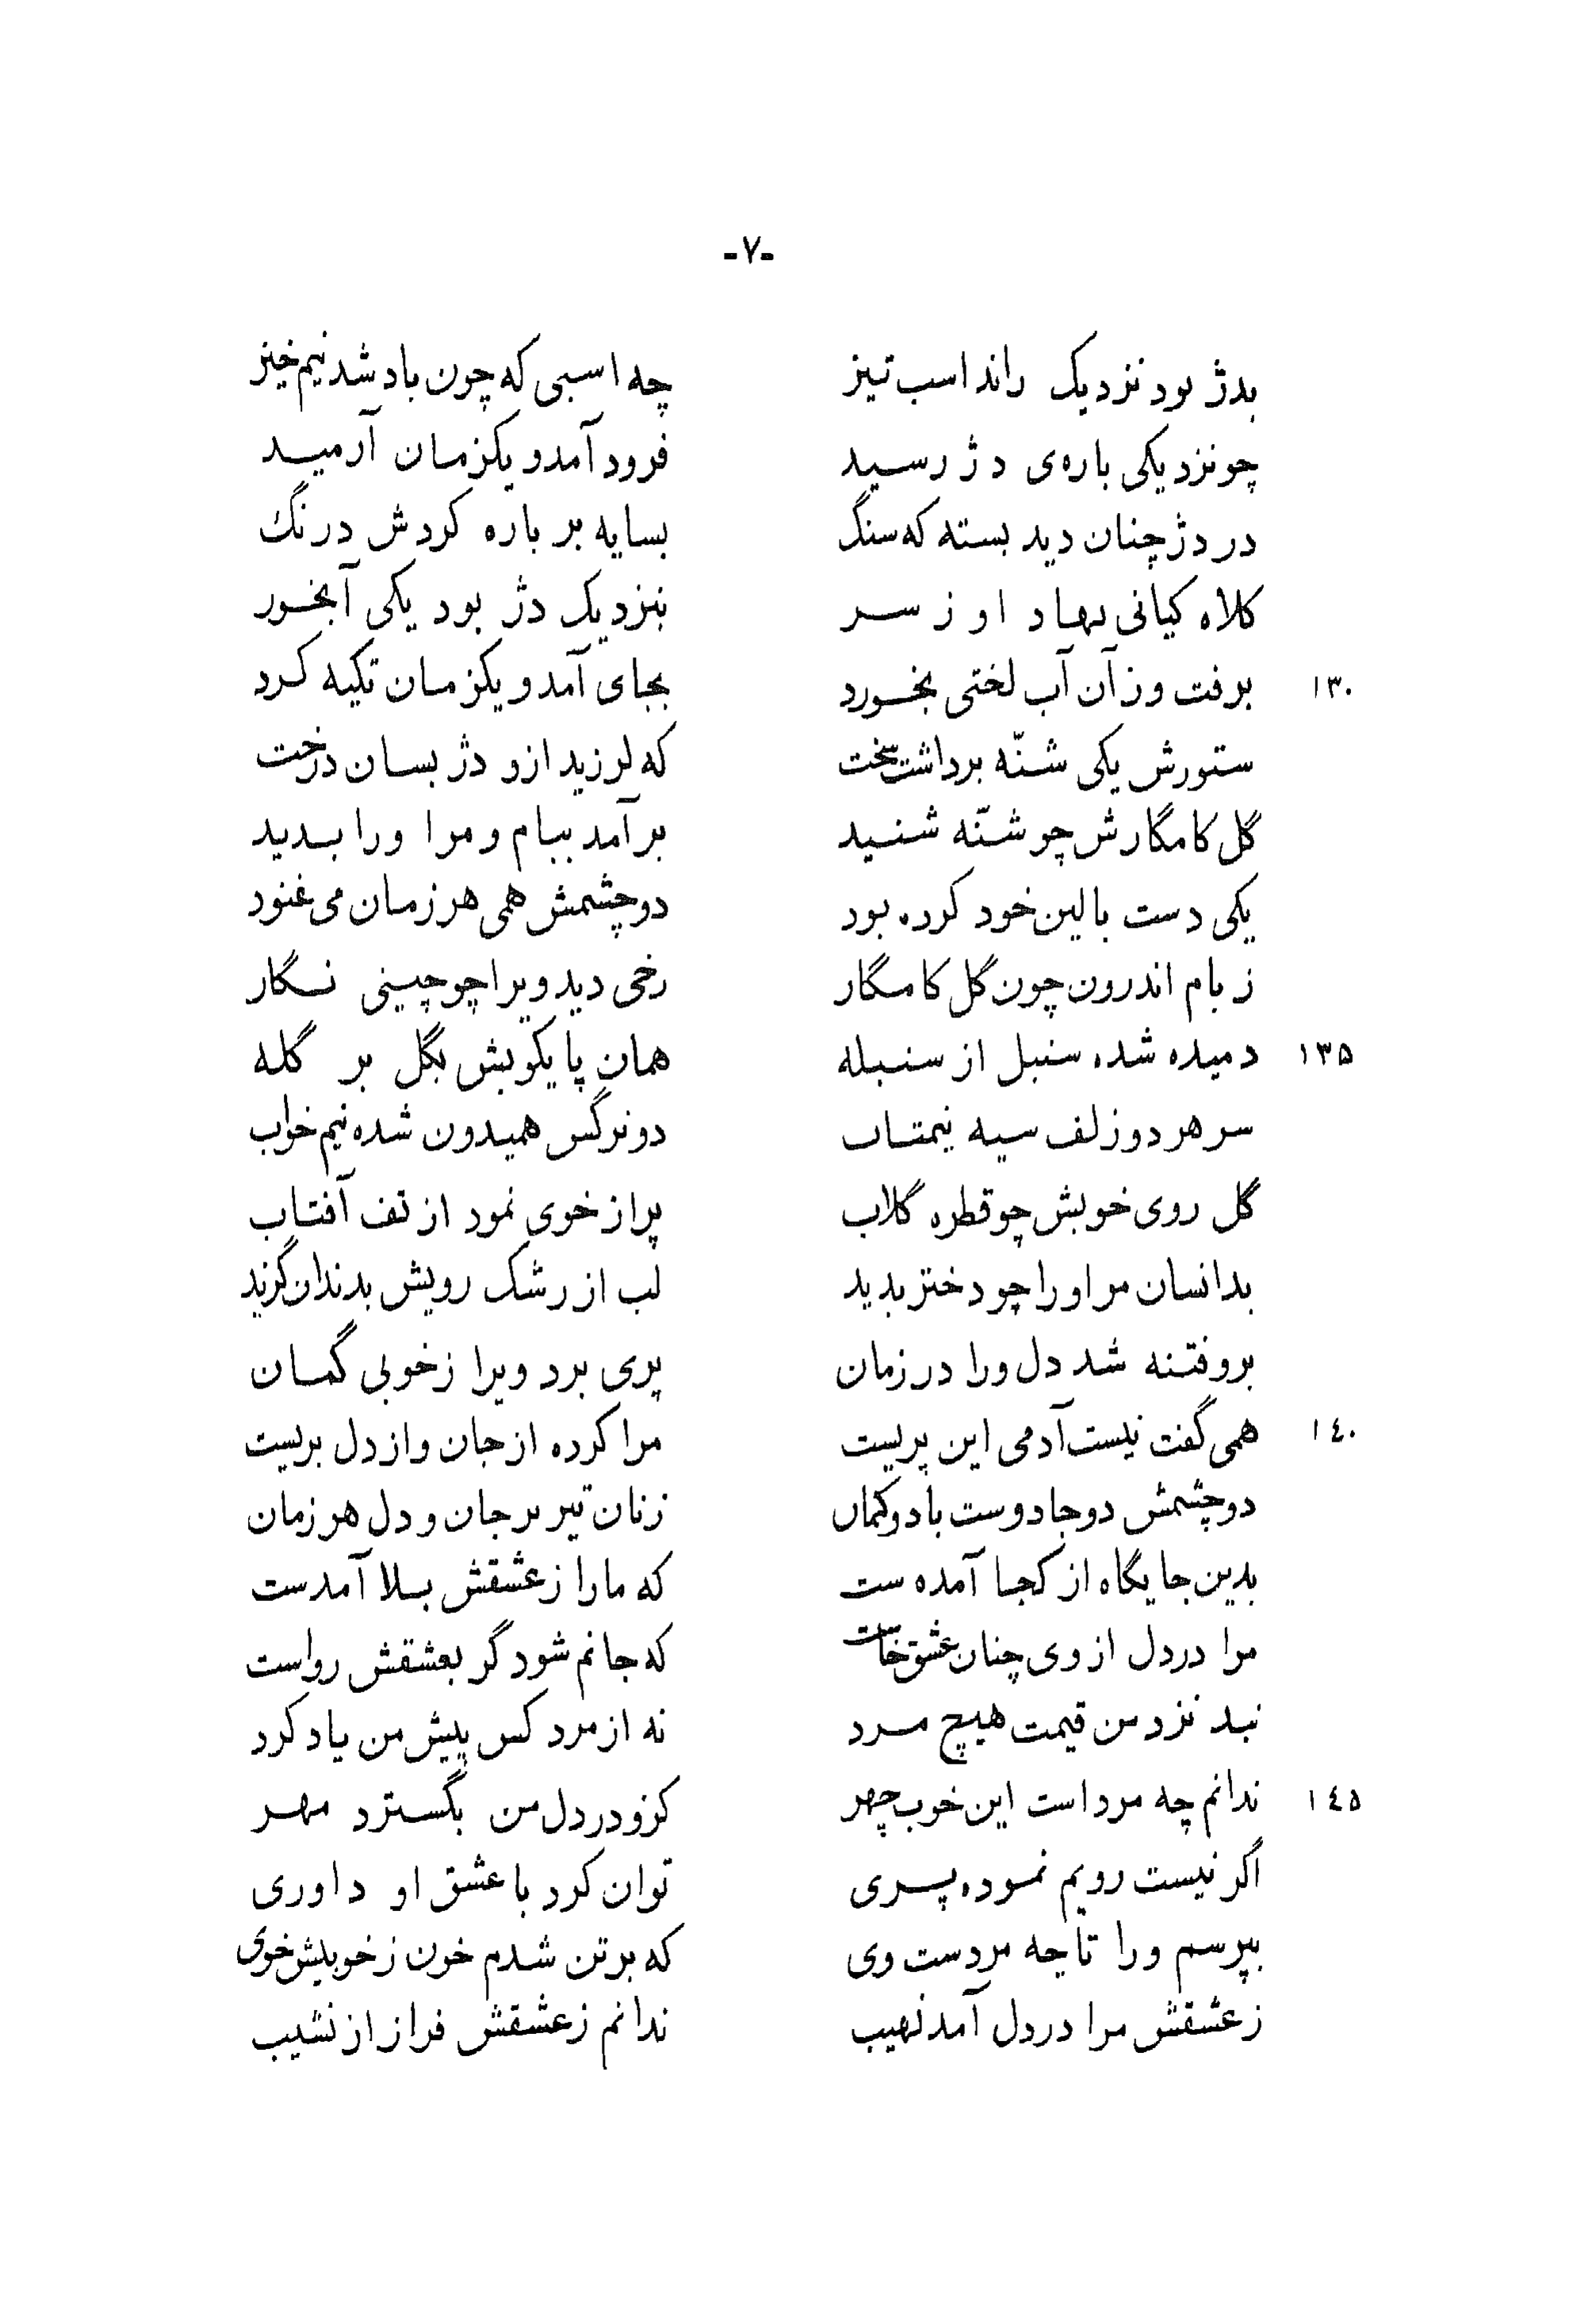 -۷-
بدژ بود نزدیک راند اسب تیز چه اسبی که چون باد شد نیم خیز
چو نزدیکی باره‌ی دژ رسید فرود آمد و یکزمان آرمید
در دژ چنان دید بسته که سنگ بسایه بر باره کردش درنگ
کلاه کیانی نهاد او ز سر بنزدیک دژ بود یکی آبخور
۱۳۰ برفت وز آن آب لختی بخورد بجای آمد و یکزمان تکیه کرد
ستورش یکی شنّه برداشت سخت که لرزید ازو دژ بسان درخت
گل کامگارش چو شنّه شنید برآمد ببام و مرا ورا بدید
یکی دست بالین خود کرده بود دو چشمش همی هر زمان می‌غنود
ز بام اندرون چون گل کامگار رخی دید ویرا چو چینی نگار
۱۳۵ دمیده شده سنبل از سنبله همان پایکوبش بگل بر گله
سر هر دو زلف سیه نیمتاب دو نرگس همیدون شده نیم خواب
گل روی خوبش چو قطره گلاب پر از خوی نمود از تف آفتاب
بدانسان مر او را چو دختر بدید لب از رشک رویش بدندان گزید
برو فتنه شد دل ورا در زمان پری برد ویرا ز خوبی گمان
۱۴۰ همی گفت نیست آدمی این پریست مرا کرده از جان و از دل بریست
دو چشمش دو جادوست با دو کمان زنان تیر بر جان و دل هر زمان
بدین جایگاه از کجا آمده ست که ما را ز عشقش بلا آمدست
مرا در دل از وی چنان عشق خاست که جانم شود گر بعشقش رواست
نبد نزد من قیمت هیچ مرد نه از مرد کس پیش من یاد کرد
۱۴۵ ندانم چه مرد است این خوب چهر کزو در دل من بگسترد مهر
اگر نیست رویم نموده پری توان کرد با عشق او داوری
بپرسم ورا تا چه مردست وی که بر تن شدم خون ز خوبیش خوی
ز عشقش مرا در دل آمد نهیب ندانم ز عشقش فراز از نشیب